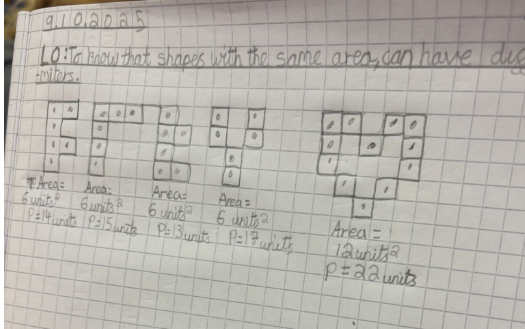 9.10.2025
LO: To know that shapes with the same area, can have
-miters.
Area=
6 units²
P=14 units
Area=
6 units²
P=15 units
Area=
6 units²
P=13 units
Area=
6 units²
P=17 units
Area=
12 units²
P=22 units